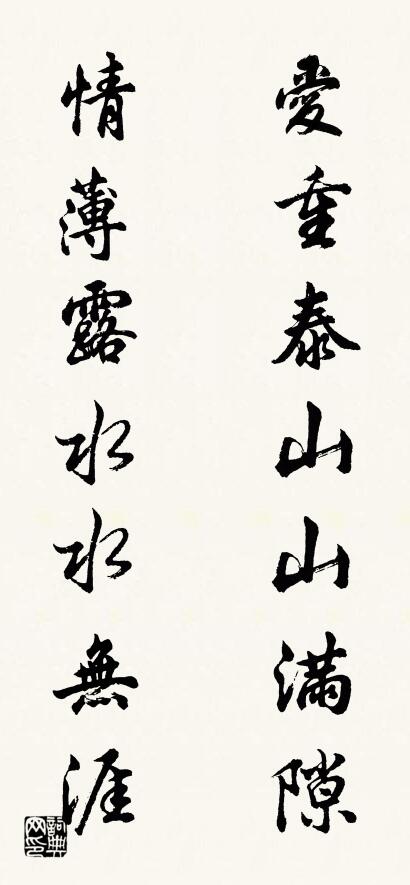 愛重泰山山滿隙
情薄露水水無涯
詞典網印